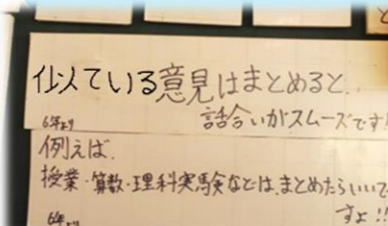 似ている意見はまとめると..
話合いがスムーズです!
6年より
例えば、
授業・算数・理科実験などは、まとめたらいいで
すよ!!
6年より